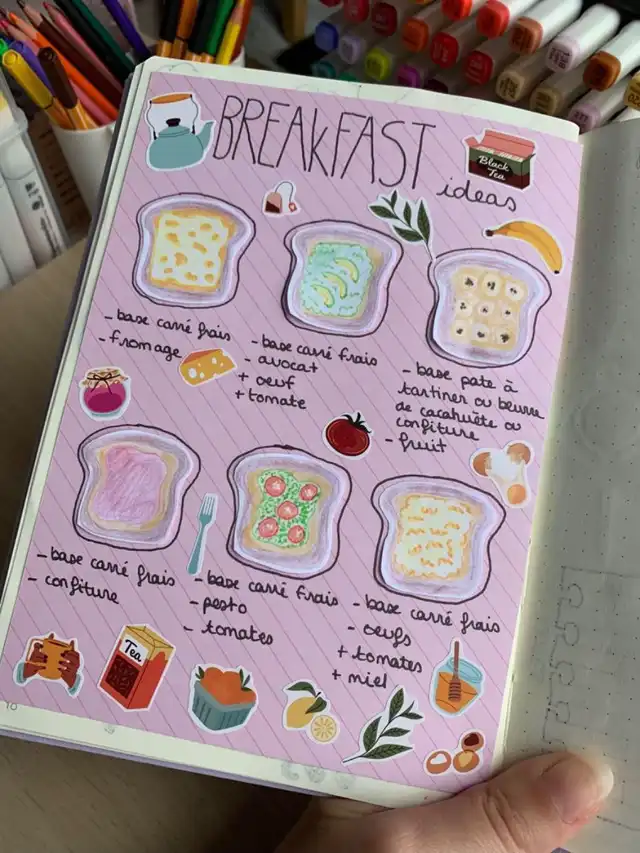 BREAKFAST
ideas
Black
Tea
- base carré frais
- fromage
- base carré frais
- avocat
+ oeuf
+ tomate
- base pate à
tartiner ou beurre
de cacahuète ou
confiture
- fruit
- base carré frais
- confiture
- base carré frais
- pesto
- tomates
- base carré frais
- oeufs
+ tomates
+ miel
Tea
10